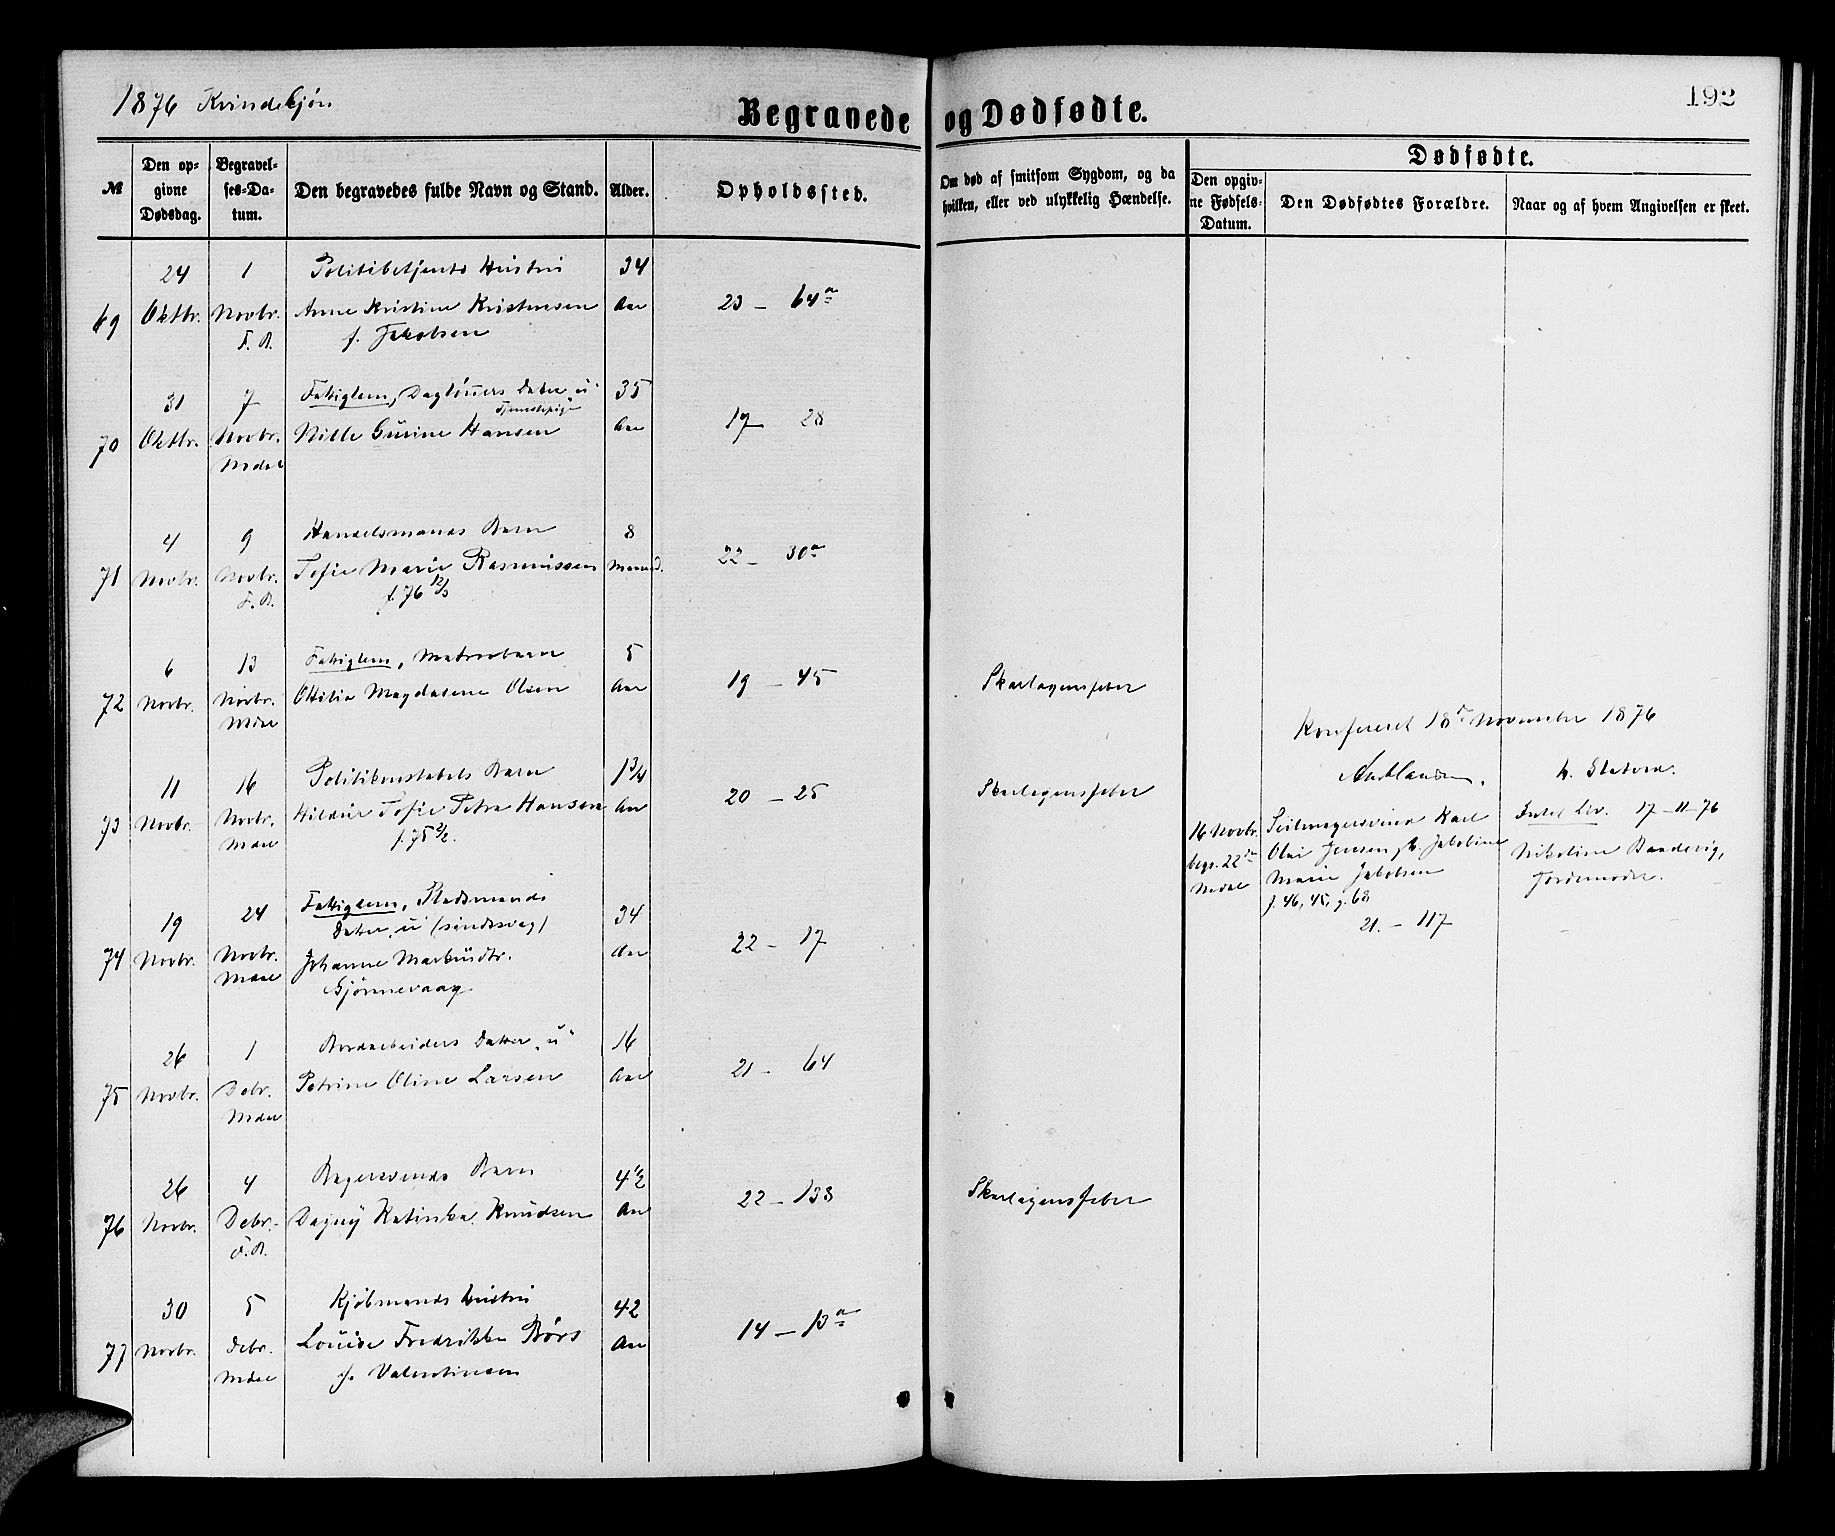 1876 Kvindekjøn
Begravede og Dødfødte.
192
№
Den opgivne Dødsdag.
Begravelses-Datum.
Den begravedes fulde Navn og Stand.
Alder.
Opholdssted.
Om død af smitsom Sygdom, og da hvilken, eller ved ulykkelig Hændelse.
Dødfødte.
Den opgivne Fødsels-Datum.
Den Dødfødtes Forældre.
Naar og af hvem Angivelsen er skeet.
24 1 Politibetjents Hustru 34
69 Oktbr. Novbr. Anne Kristine Kristensen Aar 23 – 64a
F. R. f. Jakobsen
31 7 Fattiglem, Dagløners Datter "u" 35
Tjenestepige
70 Oktbr. Novbr. Nille Gurine Hansen Aar 17 28
Mdal
4 9 Handelsmands Barn 8
71 Novbr. Novbr. Tofie Marie Rasmussen Maaned. 22 – 30a
F. R. f. 76 12/3
6 13 Fattiglem, Matrosbarn 5
72 Novbr. Novbr. Ottilia Magdalene Olsen Aar 19 – 45 Skarlagensfeber
Mdal
Konfereret 18de November 1876
11 16 Politikonstabels Barn 1 3/4
73 Novbr. Novbr. Hildur Tofie Petra Hansen Aar 20 – 25 Skarlagensfeber
Mdal f. 75 2/2.
16 Novbr. Seilmagersvend Karl
begr. 22de Olai Jensen, h. Jakobine
Mdal Marie Jakobsen
f. 46, 45, g. 68
21. – 117
17–11–76
Nikoline
Jordemoder.
19 24 Fattiglem, Pladsmands 34
Datter "u" (sindssvag)
74 Novbr. Novbr. Johanne Markusdtr. Aar 22 – 17
Mdal Gjønnevaag
26 1 Bordarbeiders Datter "u" 16
75 Novbr. Debr. Petrine Oline Larsen Aar 21 – 64
Mdal
26 4 Bagersvends Barn 4 1/2
76 Novbr. Debr. Dagny Katinka Knudsen Aar 22 – 133 Skarlagensfeber
F. R.
30 5 Kjøbmands Hustru 42
77 Novbr. Debr. Louise Fredrikke Børs Aar 14 – 13a
Mdal f. Valentinsen